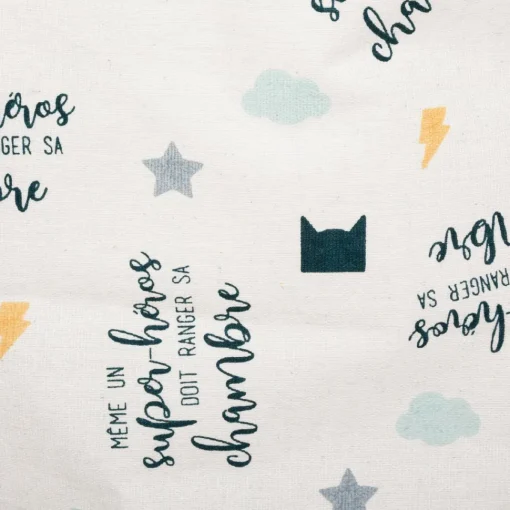 chambre
héros
GER SA
bre
MÊME UN
super-héros
DOIT RANGER SA
chambre
bre
RANGER SA
-héros